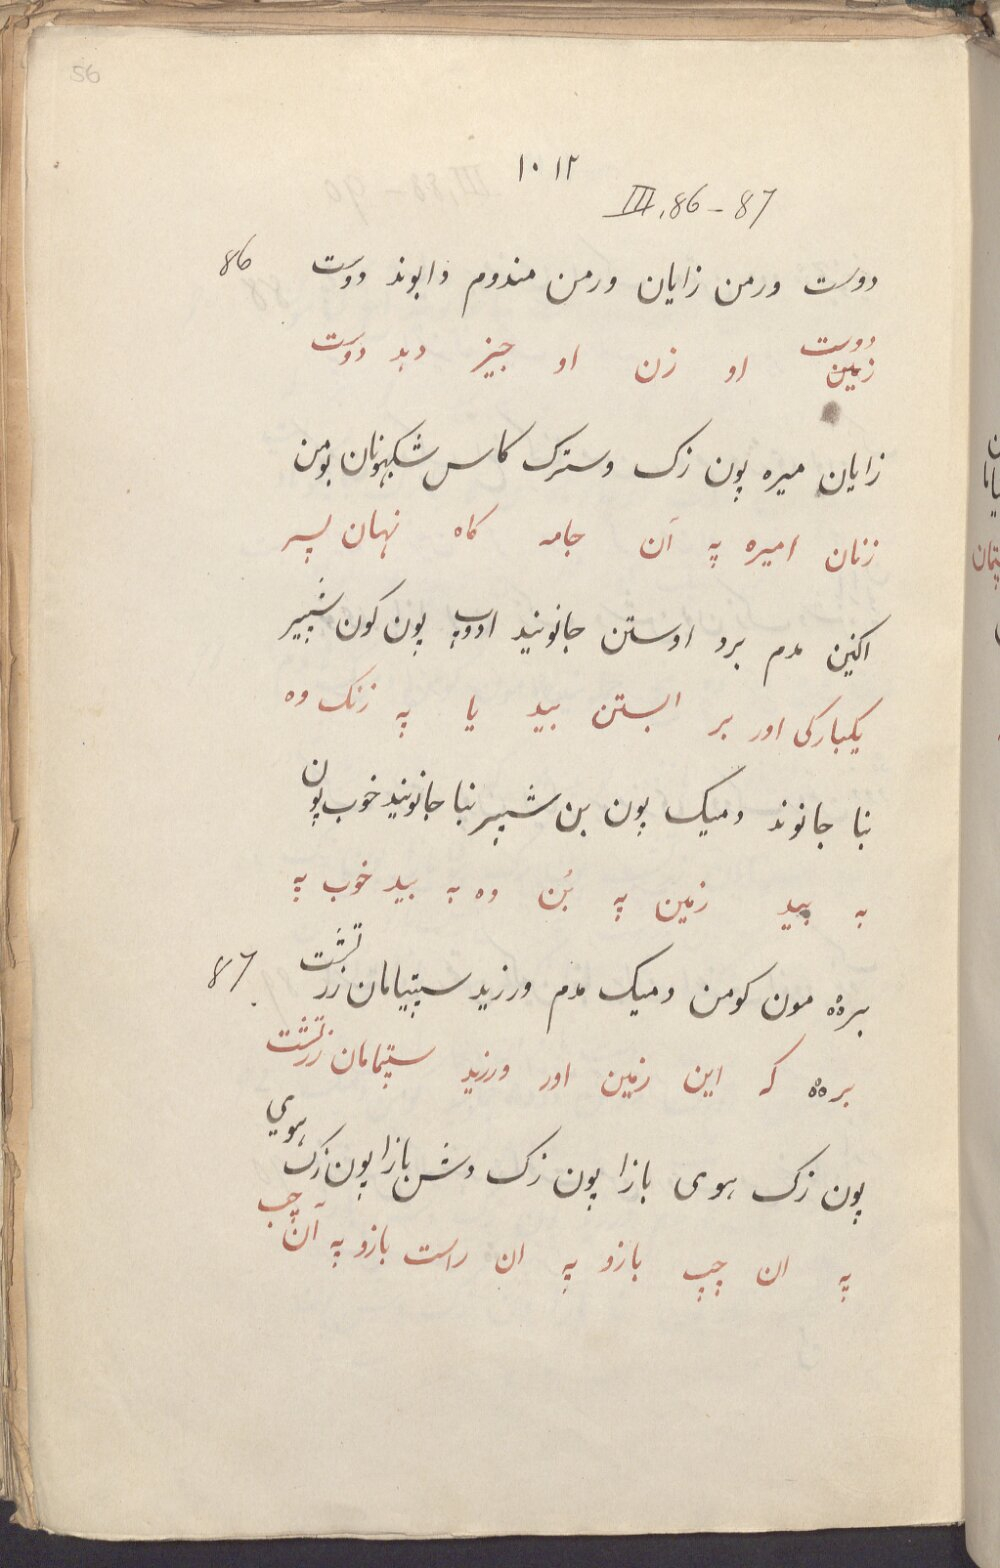 56
۱۰۱۲
III, 86-87
دوست ورمن زایان ورمن مندوم دابوند دوست 86
دوست
زمین او زن او جیز دهد دوست
زایان میره پون زک وسترک کاس شکپهونان بومن
زنان امیره په اَن جامه کاه نهان پسر
اکنین مدم برو اوستن جانونید ادوپ پون کون شپیر
یکبارکی اور بر ابستن بید یا په زنک وه
بنا جانوند دمیک پون بن شپیر بنا جانونید خوب پون
به بید زمین په بُن وه به بید خوب په
بره مون کومن دمیک مدم ورزید سپتیامان زرتشت 87
بره که این زمین اور ورزید سپتمامان زرتشت
پون زک هوی بازا پون زک دشن بازا پون زک هوی
په ان چپ بازو په ان راست بازو په اَن چپ